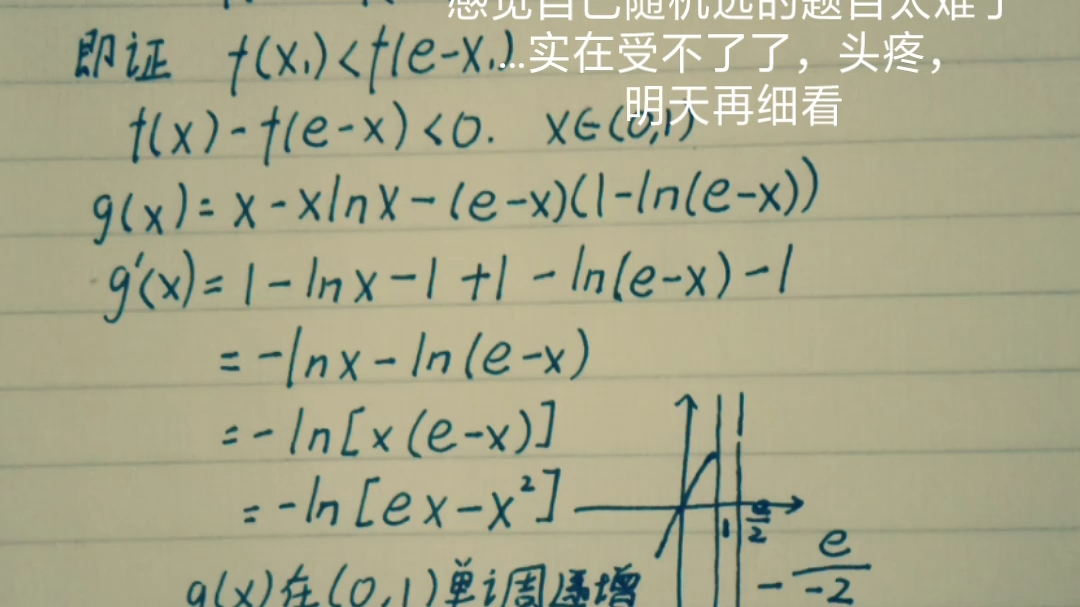 感觉自己随机选的题目太难了
...实在受不了了，头疼，
明天再细看
即证 f(x₁)<f(e-x₁)
f(x)-f(e-x)<0. x∈(0,1)
g(x)=x-xlnx-(e-x)(1-ln(e-x))
g'(x)=1-lnx-1+1-ln(e-x)-1
=-lnx-ln(e-x)
=-ln[x(e-x)]
=-ln[ex-x²]
1 e/2
-e/-2
g(x)在(0,1)单调递增